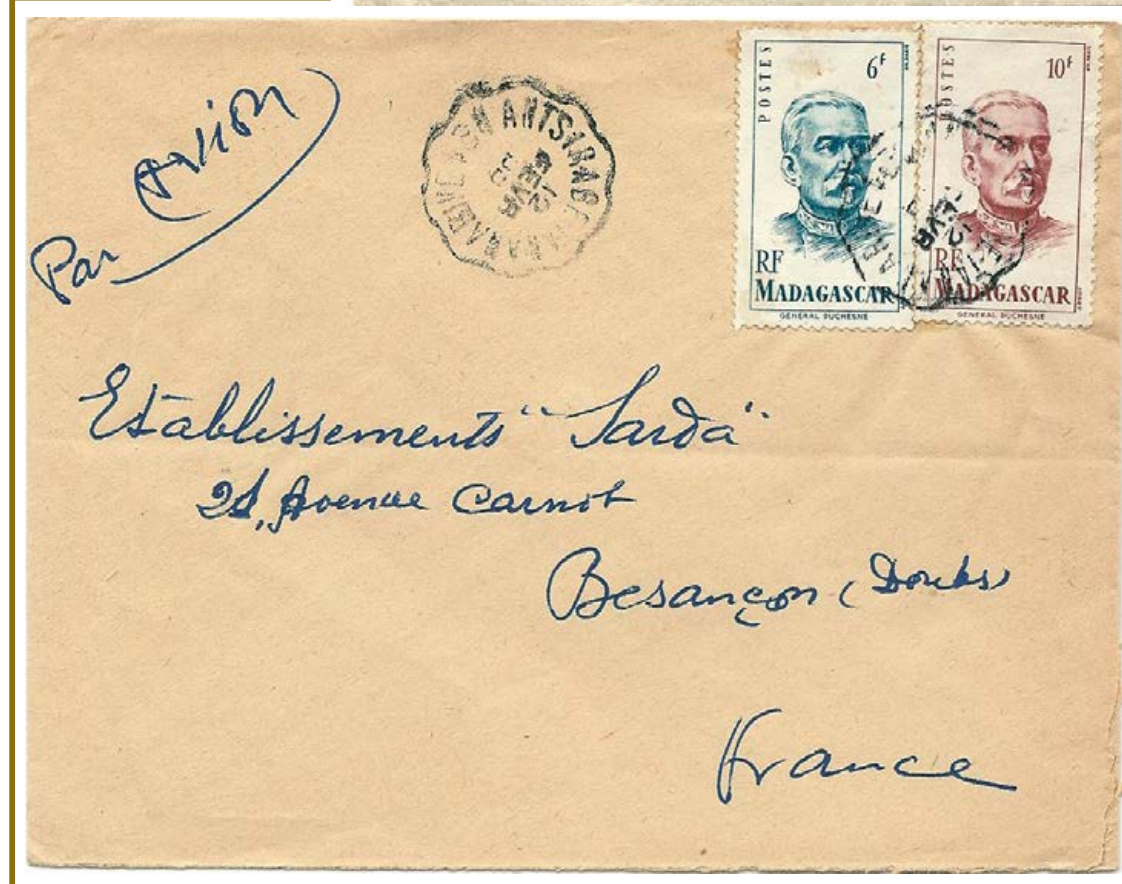 Par Avion
POSTES
6F
RF
MADAGASCAR
GENERAL DUCHESNE
POSTES
10F
RF
MADAGASCAR
GENERAL DUCHESNE
ANTSIRABE
12
FEVR
Etablissements "Sarda"
21, Avenue Carnot
Besançon (Doubs)
France